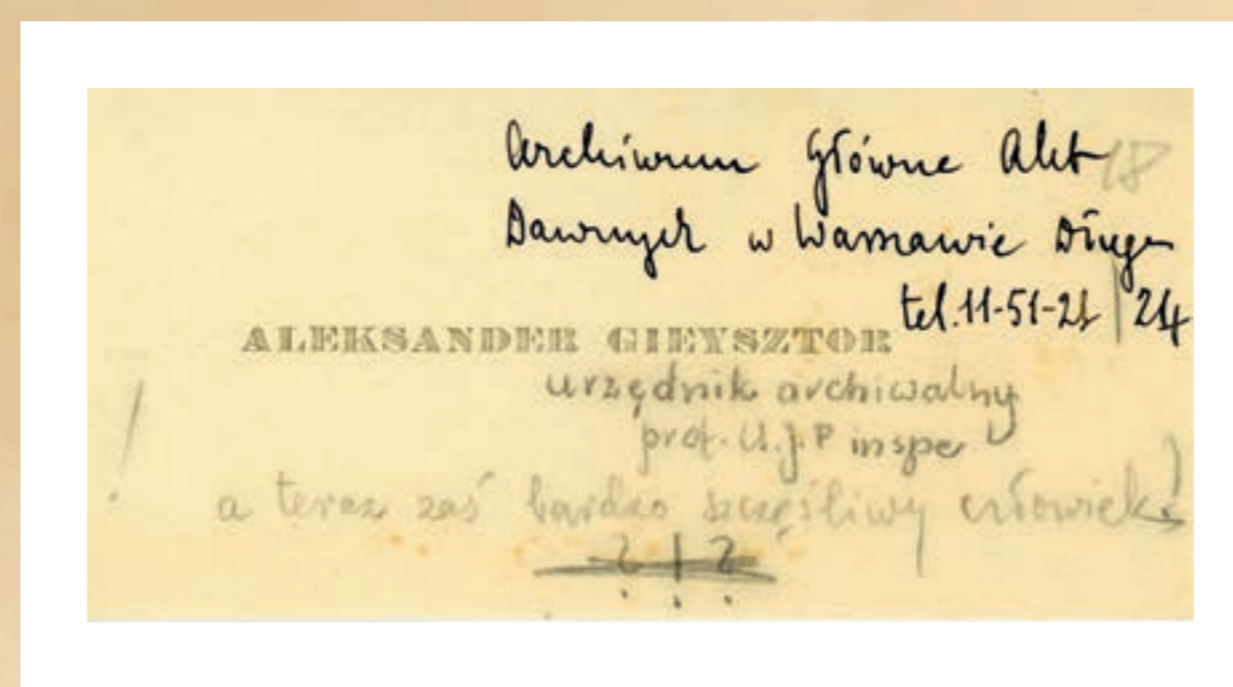 Archiwum Główne Akt 18
Dawnych w Warszawie Długa
tel. 11-51-21 | 24
ALEKSANDER GIEYSZTOR
urzędnik archiwalny
prof. U.J.P in spe
! a teraz zaś bardzo szczęśliwy człowiek!
? ! ?